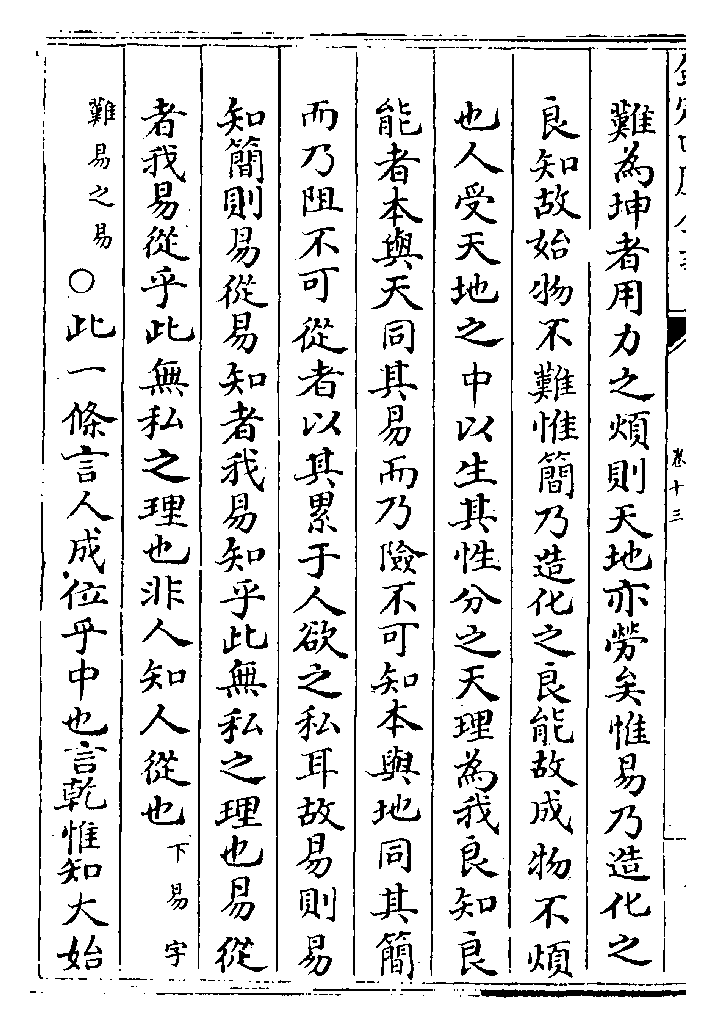 卷十三
難為坤者用力之煩則天地亦勞矣惟易乃造化之
良知故始物不難惟簡乃造化之良能故成物不煩
也人受天地之中以生其性分之天理為我良知良
能者本與天同其易而乃險不可知本與地同其簡
而乃阻不可從者以其累于人欲之私耳故易則易
知簡則易從易知者我易知乎此無私之理也易從
者我易從乎此無私之理也非人知人從也下易字
難易之易○此一條言人成位乎中也言乾惟知大始